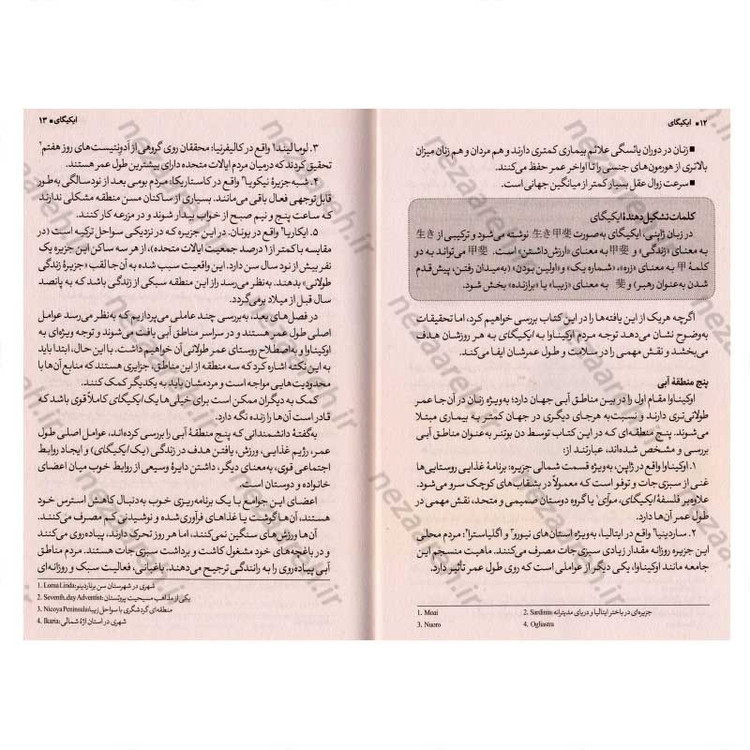 ۱۲ ■ ایکیگای
■ زنان در دوران یائسگی علائم بیماری کمتری دارند و هم مردان و هم زنان میزان
بالاتری از هورمون‌های جنسی را تا اواخر عمر حفظ می‌کنند.
■ سرعت زوال عقل بسیار کمتر از میانگین جهانی است.
کلمات تشکیل دهندهٔ ایکیگای
در زبان ژاپنی، ایکیگای به‌صورت 生き甲斐 نوشته می‌شود و ترکیبی از 生き
به معنای «زندگی» و 甲斐 به معنای «ارزش داشتن» است. 甲斐 می‌تواند به دو
کلمهٔ 甲 به معنای «زره»، «شماره یک» و «اولین بودن» (به‌میدان رفتن، پیش‌قدم
شدن به‌عنوان رهبر) و 斐 به معنای «زیبا» یا «برازنده» بخش شود.
اگرچه هریک از این یافته‌ها را در این کتاب بررسی خواهیم کرد، اما تحقیقات
به‌وضوح نشان می‌دهد توجه مردم اوکیناوا به ایکیگای به هر روزشان هدف
می‌بخشد و نقش مهمی در سلامت و طول عمرشان ایفا می‌کند.
پنج منطقهٔ آبی
اوکیناوا مقام اول را در بین مناطق آبی جهان دارد؛ به‌ویژه زنان در آن‌جا عمر
طولانی‌تری دارند و نسبت به هرجای دیگری در جهان کمتر به بیماری مبتلا
می‌شوند. پنج منطقه‌ای که در این کتاب توسط دن بوتنر به‌عنوان مناطق آبی
بررسی و مشخص شده‌اند، عبارتند از:
۱. اوکیناوا واقع در ژاپن، به‌ویژه قسمت شمالی جزیره: برنامهٔ غذایی روستایی‌ها
غنی از سبزی‌جات و توفو است که معمولاً در بشقاب‌های کوچک سرو می‌شود.
علاوه‌بر فلسفهٔ ایکیگای، موآی۱ یا گروه دوستان صمیمی و متحد، نقش مهمی در
طول عمر آن‌ها دارد.
۲. ساردینیا۲ واقع در ایتالیا، به‌ویژه استان‌های نیورو۳ و اگلیاسترا۴: مردم محلی
این جزیره روزانه مقدار زیادی سبزی‌جات مصرف می‌کنند. ماهیت منسجم این
جامعه مانند اوکیناوا، یکی دیگر از عواملی است که روی طول عمر تأثیر دارد.
1. Moai
2. Sardinia: جزیره‌ای در باختر ایتالیا و دریای مدیترانه
3. Nuoro
4. Ogliastra
ایکیگای ■ ۱۳
۳. لوما لیندا۱ واقع در کالیفرنیا: محققان روی گروهی از اَدونتیست‌های روز هفتم۲
تحقیق کردند که درمیان مردم ایالات متحده دارای بیشترین طول عمر هستند.
۴. شبه‌جزیرهٔ نیکویا۳ واقع در کاستاریکا: مردم بومی بعد از نودسالگی به‌طور
قابل‌توجهی فعال باقی می‌مانند. بسیاری از ساکنان مسن منطقه مشکلی ندارند
که ساعت پنج و نیم صبح از خواب بیدار شوند و در مزرعه کار کنند.
۵. ایکاریا۴ واقع در یونان. در این جزیره که در نزدیکی سواحل ترکیه است (در
مقایسه با کمتر از ۱ درصد جمعیت ایالات متحده)، از هر سه ساکن این جزیره یک
نفر بیش از نود سال سن دارد. این واقعیت سبب شده به آن‌جا لقب «جزیرهٔ زندگی
طولانی» بدهند. به‌نظر می‌رسد راز این منطقه سبکی از زندگی باشد که به پانصد
سال قبل از میلاد برمی‌گردد.
در فصل‌های بعد، به‌بررسی چند عاملی می‌پردازیم که به‌نظر می‌رسد عوامل
اصلی طول عمر هستند و در سراسر مناطق آبی یافت می‌شوند و توجه ویژه‌ای به
اوکیناوا و به‌اصطلاح روستای عمر طولانی آن خواهیم داشت. با این حال، ابتدا باید
به این نکته اشاره کرد که سه منطقه از این مناطق، جزایری هستند که منابع آن‌ها با
محدودیت‌هایی مواجه است و مردمشان باید به یکدیگر کمک کنند.
کمک به دیگران ممکن است برای خیلی‌ها یک ایکیگای کاملاً قوی باشد که
قادر است آن‌ها را زنده نگه دارد.
به‌گفتهٔ دانشمندانی که پنج منطقهٔ آبی را بررسی کرده‌اند، عوامل اصلی طول
عمر، رژیم غذایی، ورزش، یافتن هدف در زندگی (یک ایکیگای) و ایجاد روابط
اجتماعی قوی، به‌معنای دیگر، داشتن دایرهٔ وسیعی از روابط خوب میان اعضای
خانواده و دوستان است.
اعضای این جوامع با یک برنامه‌ریزی خوب به‌دنبال کاهش استرس خود
هستند، آن‌ها گوشت یا غذاهای فرآوری‌شده و نوشیدنی کم مصرف می‌کنند.
آن‌ها ورزش‌های سنگین نمی‌کنند، اما هر روز تحرک دارند، پیاده‌روی می‌کنند
و در باغچه‌های خود مشغول کاشت و برداشت سبزی جات هستند. مردم مناطق
آبی پیاده‌روی را به رانندگی ترجیح می‌دهند. باغبانی، فعالیت سبک و روزانه‌ای
1. Loma Linda: شهری در شهرستان سن برناردینو
2. Seventh, day Adventist: یکی از مذاهب مسیحیت پروتستان
3. Nicoya Peninsula: منطقه‌ای گردشگری با سواحل زیبا
4. Ikaria: شهری در استان اژهٔ شمالی
nezaareh.ir